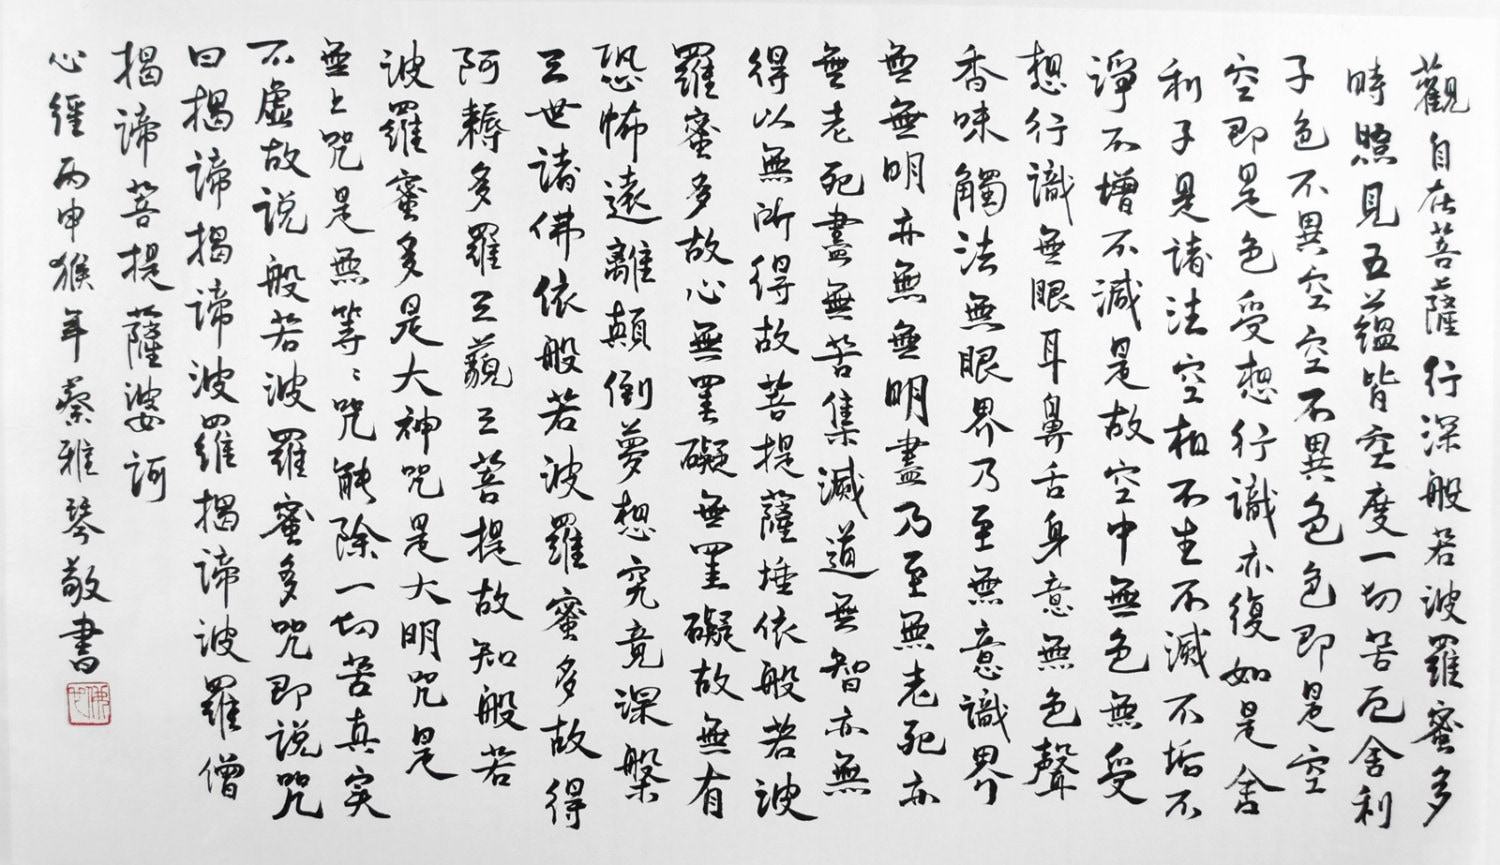 觀自在菩薩行深般若波羅蜜多
時照見五蘊皆空度一切苦厄舍利
子色不異空空不異色色即是空
空即是色受想行識亦復如是舍
利子是諸法空相不生不滅不垢不
淨不增不減是故空中無色無受
想行識無眼耳鼻舌身意無色聲
香味觸法無眼界乃至無意識界
無無明亦無無明盡乃至無老死亦
無老死盡無苦集滅道無智亦無
得以無所得故菩提薩埵依般若波
羅蜜多故心無罣礙無罣礙故無有
恐怖遠離顛倒夢想究竟涅槃
三世諸佛依般若波羅蜜多故得
阿耨多羅三藐三菩提故知般若
波羅蜜多是大神咒是大明咒是
無上咒是無等〻咒能除一切苦真实
不虛故説般若波羅蜜多咒即説咒
曰揭諦揭諦波羅揭諦波羅僧
揭諦菩提薩婆訶
心經丙申猴年蔡雅琴敬書